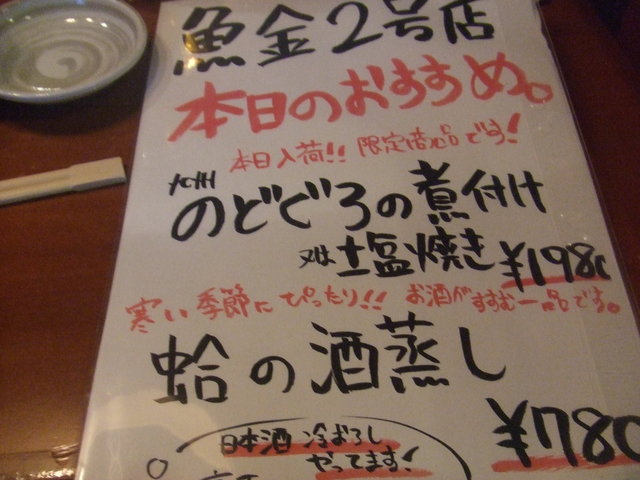 魚金2号店
本日のおすすめ。
本日入荷!! 限定商品です!
九州
のどぐろの煮付け
又は塩焼き ¥1980
寒い季節にぴったり!! お酒がすすむ一品です。
蛤の酒蒸し
¥780
日本酒 冷おろし
やってます!